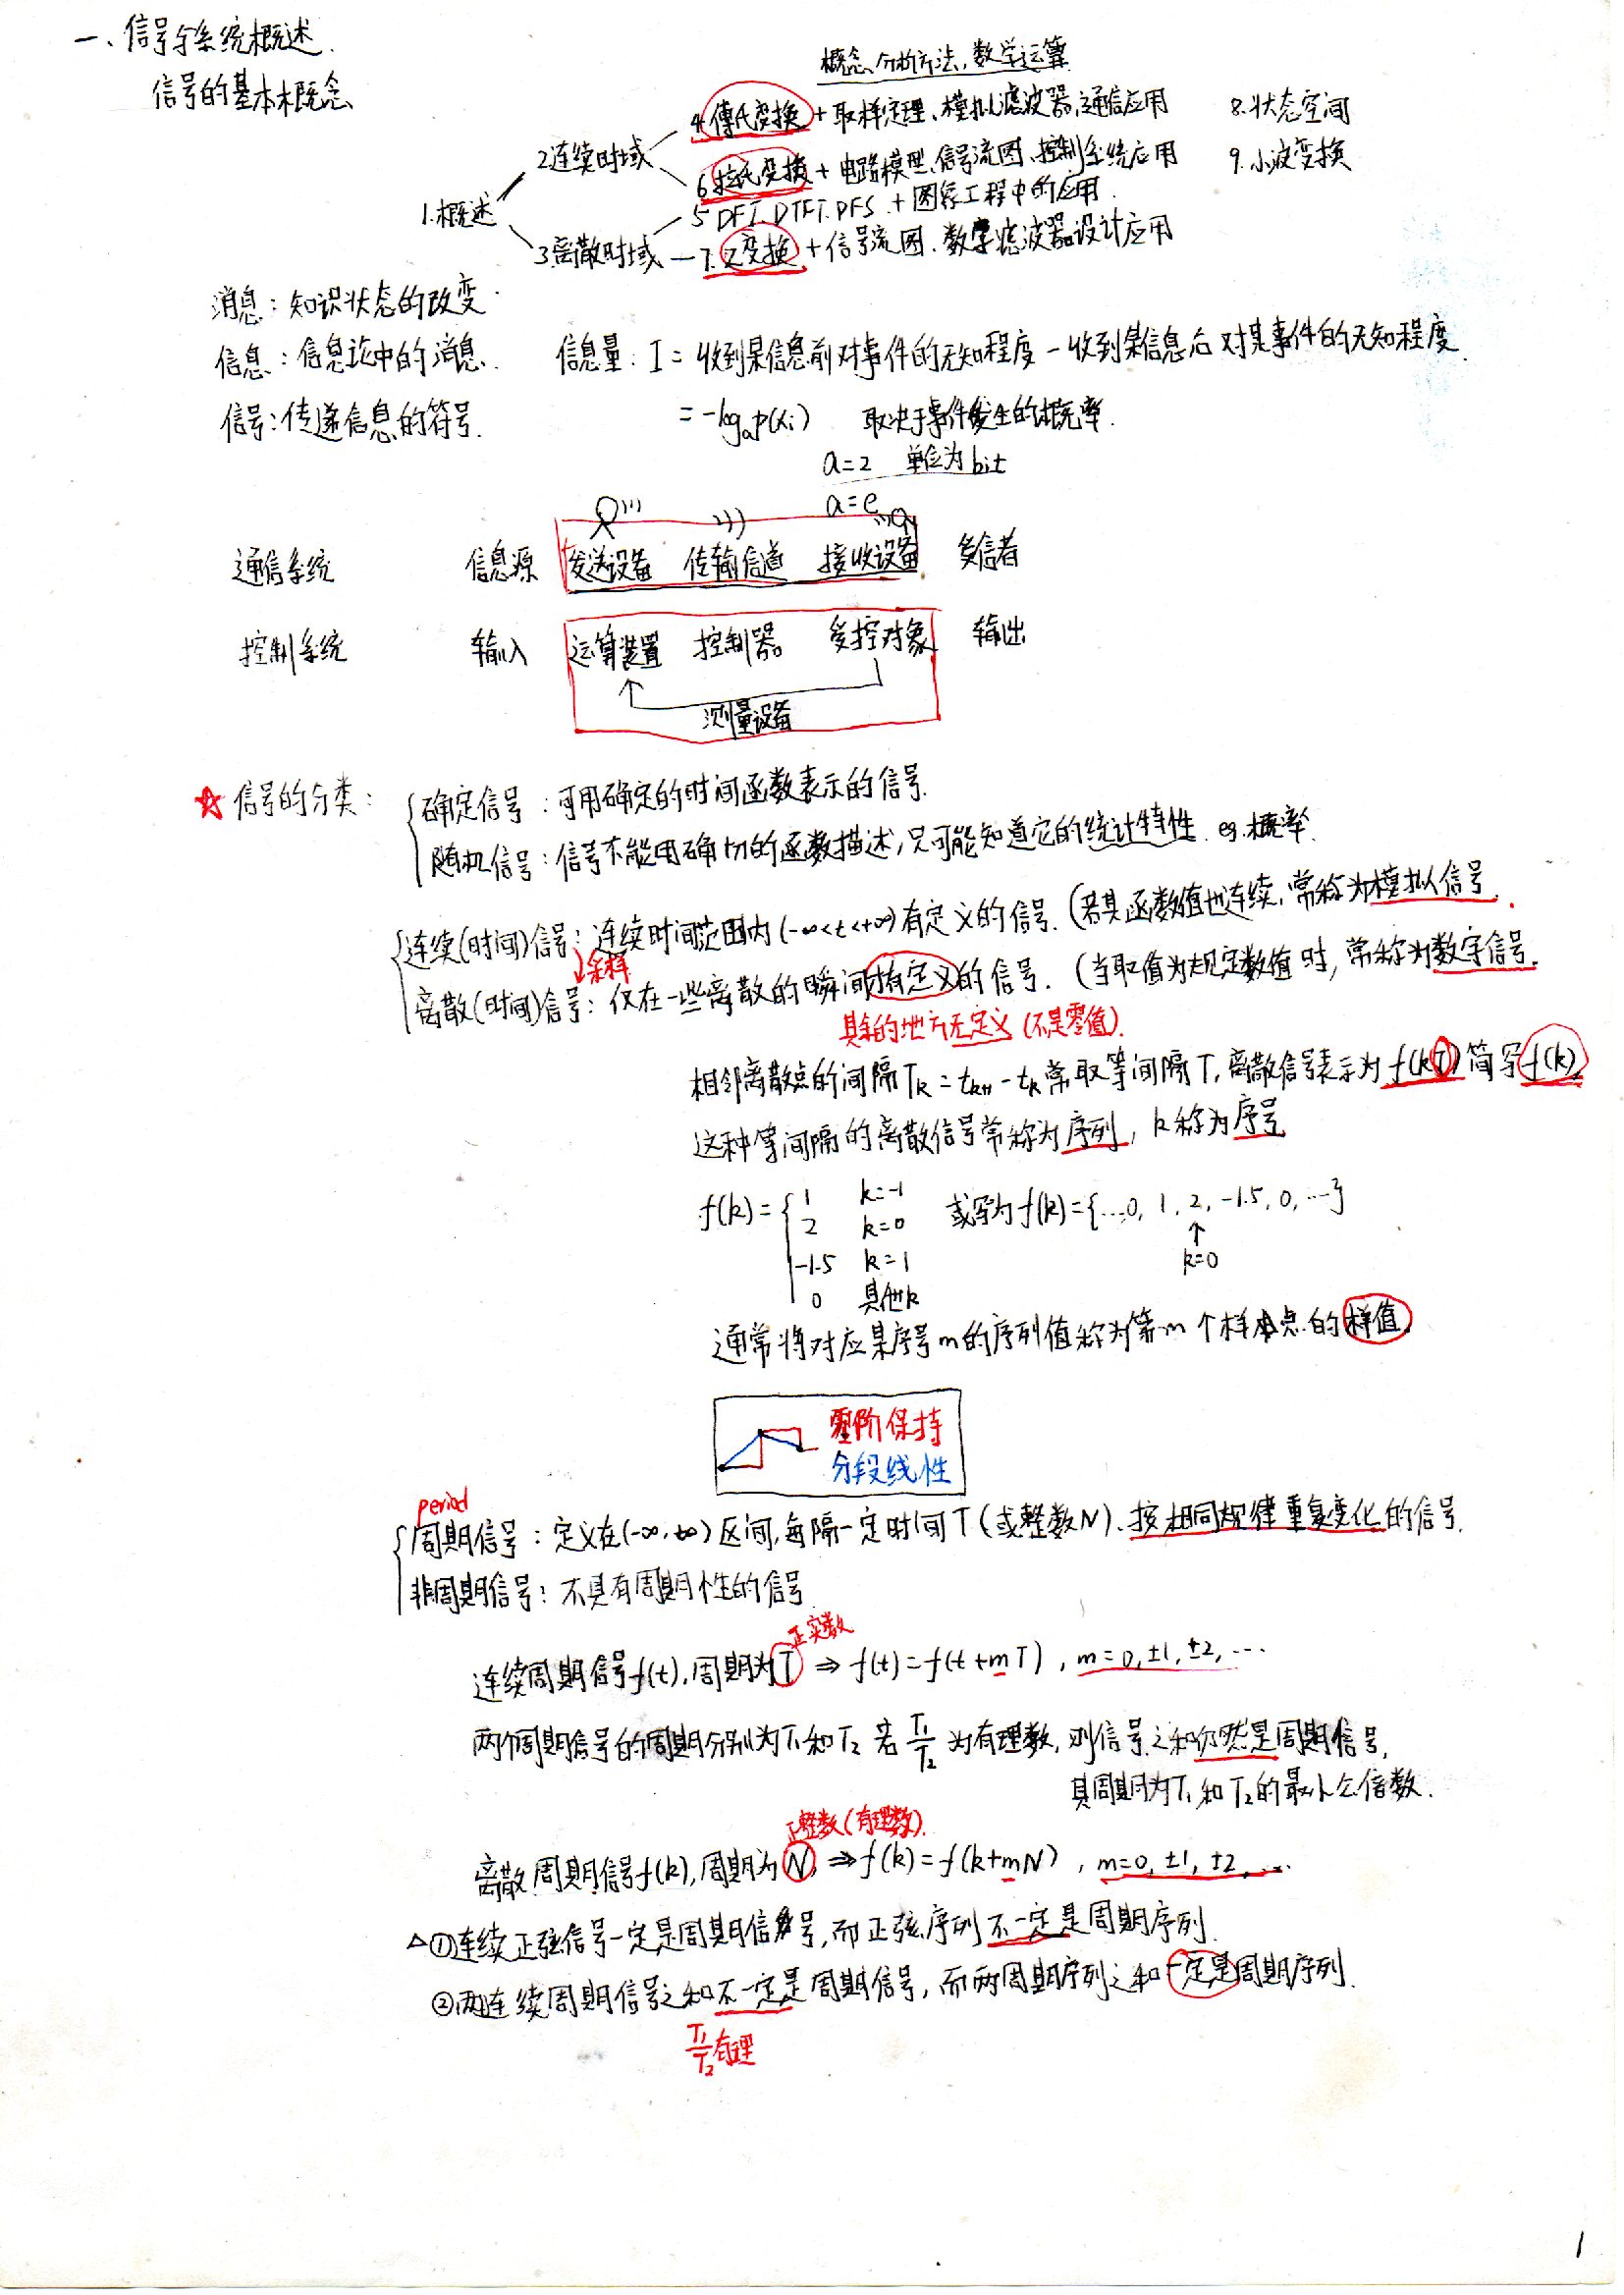 一、信号与系统概述.
信号的基本概念
概念、分析方法、数学运算
4.傅氏变换+取样定理、模拟滤波器、通信应用 8.状态空间
2连续时域
6拉氏变换+电路模型、信号流图、控制系统应用 9.小波变换
1.概述
5 DFT.DTFT.DFS.+图象工程中的应用.
3.离散时域—7.Z变换+信号流图、数字滤波器设计应用
消息：知识状态的改变.
信息：信息论中的消息. 信息量：I=收到某信息前对事件的无知程度-收到某信息后对某事件的无知程度.
信号：传递信息的符号. =-logₐp(xᵢ) 取决于事件发生的概率.
a=2 单位为bit
a=e
通信系统 信息源 发送设备 传输信道 接收设备 受信者
控制系统 输入 运算装置 控制器 受控对象 输出
测量设备
☆信号的分类：
确定信号：可用确定的时间函数表示的信号.
随机信号：信号不能用确切的函数描述,只可能知道它的统计特性. eg.概率.
连续(时间)信号：连续时间范围内(-∞<t<+∞)有定义的信号.(若其函数值也连续,常称为模拟信号.
↓采样
离散(时间)信号：仅在一些离散的瞬间有定义的信号.(当取值为规定数值时,常称为数字信号.
其余的地方无定义(不是零值).
相邻离散点的间隔Tₖ=tₖ₊₁-tₖ常取等间隔T,离散信号表示为f(kT)简写f(k).
这种等间隔的离散信号常称为序列,k称为序号
f(k)={1 k=-1 或写为f(k)={…,0,1,2,-1.5,0,…}
2 k=0 ↑
-1.5 k=1 k=0
0 其他k
通常将对应某序号m的序列值称为第m个样本点的样值.
零阶保持
分段线性
period
周期信号：定义在(-∞,+∞)区间,每隔一定时间T(或整数N).按相同规律重复变化的信号.
非周期信号：不具有周期性的信号.
正实数
连续周期信号f(t),周期为T⇒f(t)=f(t+mT),m=0,±1,±2,…
两个周期信号的周期分别为T₁和T₂若T₁/T₂为有理数,则信号之和仍然是周期信号,
其周期为T₁和T₂的最小公倍数.
正整数(有理数).
离散周期信号f(k),周期为N,⇒f(k)=f(k+mN),m=0,±1,±2,…
△①连续正弦信号一定是周期信号,而正弦序列不一定是周期序列.
②两连续周期信号之和不一定是周期信号,而两周期序列之和一定是周期序列.
T₁/T₂有理
1